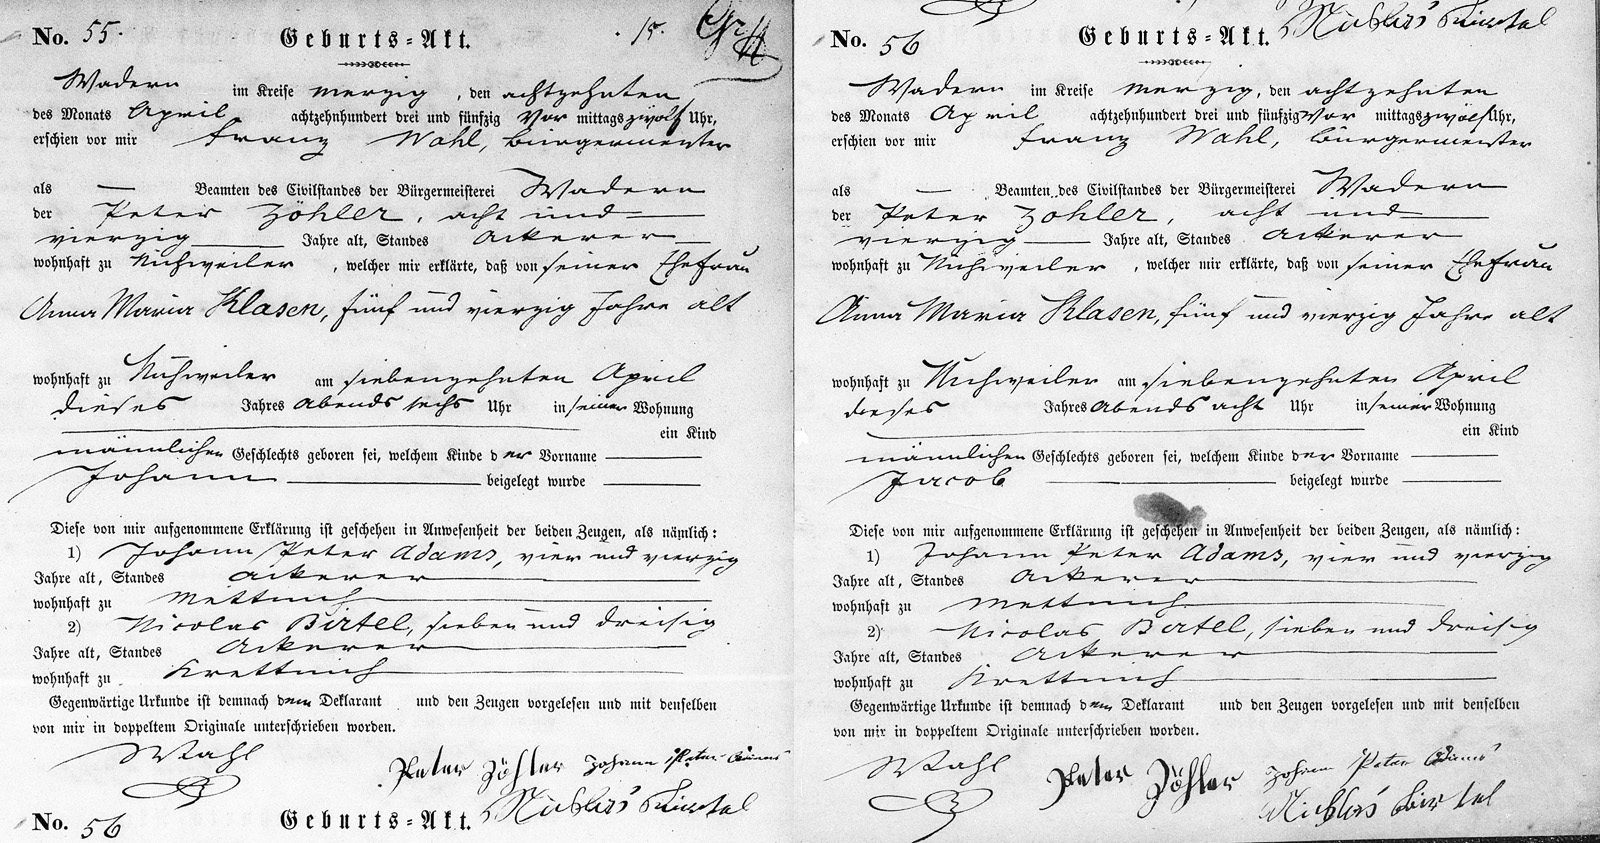 No. 55. Geburts-Akt. 15.
Wadern im Kreise Merzig, den achtzehnten
des Monats April achtzehnhundert drei und fünfzig Vor mittags zwölf Uhr,
erschien vor mir Franz Wahl, Bürgermeister
als — Beamten des Civilstandes der Bürgermeisterei Wadern
der Peter Zöhler, acht und
vierzig Jahre alt, Standes Ackerer
wohnhaft zu Nuhweiler, welcher mir erklärte, daß von seiner Ehefrau
Anna Maria Klasen, fünf und vierzig Jahre alt
wohnhaft zu Nuhweiler am siebenzehnten April
dieses Jahres Abends sechs Uhr in seiner Wohnung
ein Kind
männlichen Geschlechts geboren sei, welchem Kinde der Vorname
Johann beigelegt wurde
Diese von mir aufgenommene Erklärung ist geschehen in Anwesenheit der beiden Zeugen, als nämlich:
1) Johann Peter Adams, vier und vierzig
Jahre alt, Standes Ackerer
wohnhaft zu Mettnich
2) Nicolas Birtel, sieben und dreisig
Jahre alt, Standes Ackerer
wohnhaft zu Krettnich
Gegenwärtige Urkunde ist demnach dem Deklarant und den Zeugen vorgelesen und mit denselben
von mir in doppeltem Originale unterschrieben worden.
Wahl Peter Zöhler Johann Peter Adams
No. 56 Geburts-Akt. Nicklas Birtel
No. 56 Geburts-Akt. Nicklas Birtel
Wadern im Kreise Merzig, den achtzehnten
des Monats April achtzehnhundert drei und fünfzig Vor mittags zwölf Uhr,
erschien vor mir Franz Wahl, Bürgermeister
als — Beamten des Civilstandes der Bürgermeisterei Wadern
der Peter Zöhler, acht und
vierzig Jahre alt, Standes Ackerer
wohnhaft zu Nuhweiler, welcher mir erklärte, daß von seiner Ehefrau
Anna Maria Klasen, fünf und vierzig Jahre alt
wohnhaft zu Nuhweiler am siebenzehnten April
dieses Jahres Abends acht Uhr in seiner Wohnung
ein Kind
männlichen Geschlechts geboren sei, welchem Kinde der Vorname
Jacob beigelegt wurde
Diese von mir aufgenommene Erklärung ist geschehen in Anwesenheit der beiden Zeugen, als nämlich:
1) Johann Peter Adams, vier und vierzig
Jahre alt, Standes Ackerer
wohnhaft zu Mettnich
2) Nicolas Birtel, sieben und dreisig
Jahre alt, Standes Ackerer
wohnhaft zu Krettnich
Gegenwärtige Urkunde ist demnach dem Deklarant und den Zeugen vorgelesen und mit denselben
von mir in doppeltem Originale unterschrieben worden.
Wahl Peter Zöhler Johann Peter Adams
Nicklas Birtel